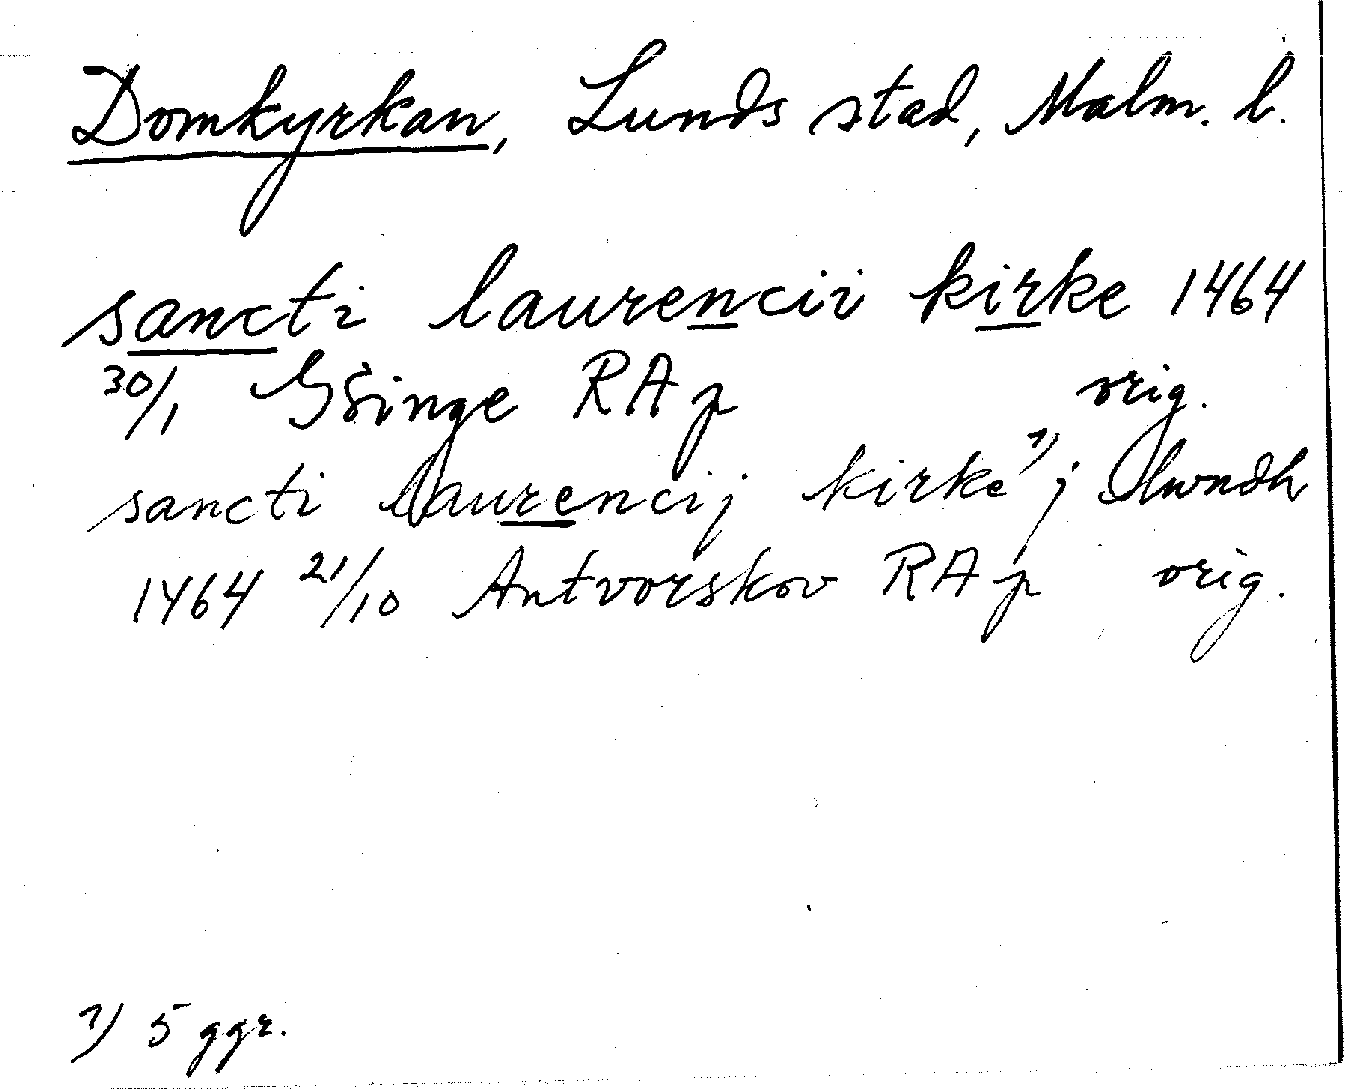 Domkyrkan, Lunds stad, Malm. l.
sancti laurencii kirke 1464
30/1 GSinge RAp orig.
sancti laurencij kirke 1) j lwndh
1464 21/10 Antvorskov RAp orig.
1) 5 ggr.